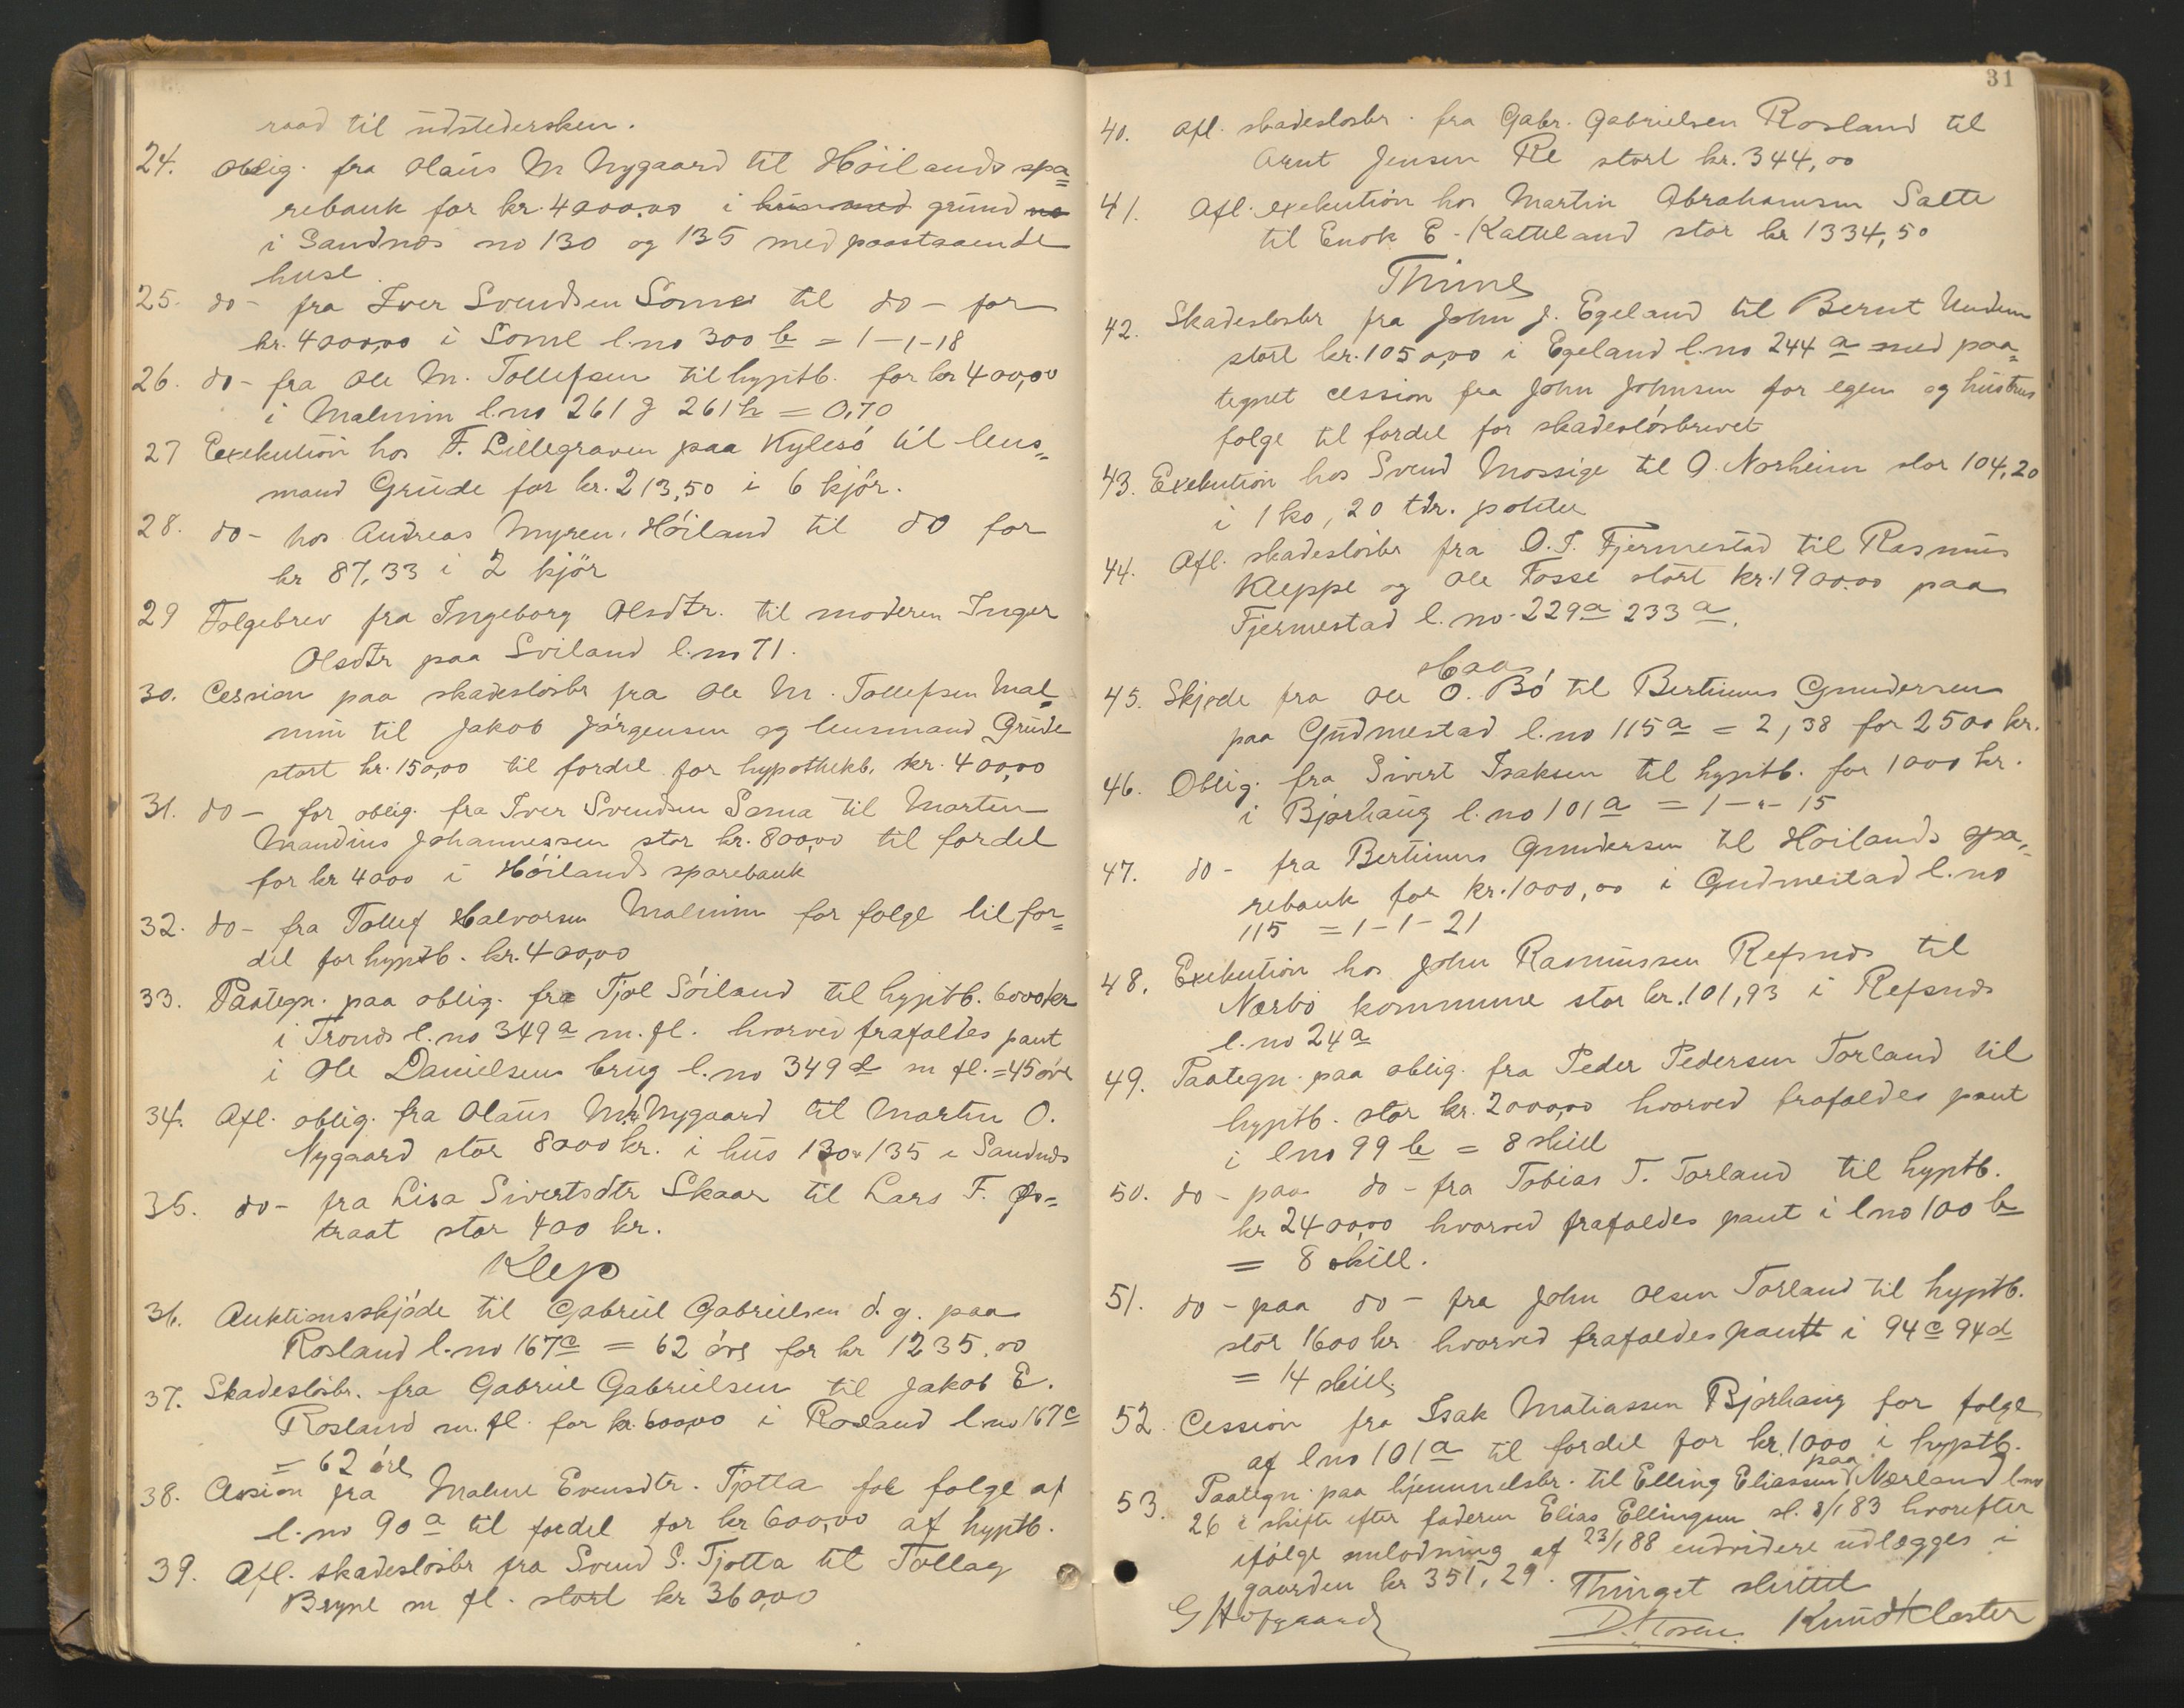 raad til udstedersken.
24. Oblig. fra Olaus M Nygaard til Höilands spa=
rebank for kr. 4000.00 i hus med grund no
i Sandnæs no 130 og 135 med paastaaende
huse.
25. do - fra Iver Svendsen Some til do - for
kr. 4000,00 i Some l.no 300 b = 1-1-18
26. do - fra Ole M. Tollefsen til hyptb. for kr 400,00
i Malmin l.no 261 g 261 h = 0,70
27 Exekution hos F. Lillegraven paa Kylesö til lens=
mand Grude for kr. 213,50 i 6 kjör.
28. do - hos Andreas Myren, Höiland til do for
kr 87,33 i 2 kjör
29 Folgebrev fra Ingeborg Olsdtr. til moderen Inger
Olsdtr paa Sviland l.no 71.
30. Cession paa skadeslösbr fra Ole M. Tollefsen Mal=
min til Jakob Jörgensen og lensmand Grude
stort kr. 150,00 til fordel for hypothekb. kr. 400,00
31. do - for oblig. fra Iver Svendsen Soma til Marten
Mandius Johannessen stor kr. 800,00 til fordel
for kr 4000 i Höilands sparebank
32. do - fra Tollef Halvorsen Malmin for folge til for=
del for hyptb. kr. 400,00
33. Paategn. paa oblig. fra Tjöl Söiland til hyptb. 6000 kr
i Tronds l.no 349 a m. fl. hvorved frafaldes pant
i Ole Danielsens brug l.no 349 d m fl. = 45 öre
34. Afl. oblig. fra Olaus M. Nygaard til Martin O.
Nygaard stor 8000 kr. i hus 130 & 135 i Sandnæs
35. do - fra Lisa Sivertsdtr Skaar til Lars F. Øs=
traat stor 400 kr.
Klep
36. Auktionsskjöde til Gabriel Gabrielsen d. y. paa
Rosland l.no 167 c = 62 öre for kr 1235.00
37. Skadeslösbr. fra Gabriel Gabrielsen til Jakob E.
Rosland m. fl. for kr. 600,00 i Rosland l.no 167 c
= 62 öre
38. Cession fra Malene Evensdtr. Tjotta for folge af
l.no 90 a til fordel for kr 600,00 af hyptb.
39. Afl. skadeslösbr fra Svend S. Tjotta til Tollag
Bryne m fl. stort kr 360,00
31
40. Afl. skadeslosbr. fra Gabr. Gabrielsen Rosland til
Arnt Jensen Re stort kr. 344,00
41. Afl. exekution hos Martin Abrahamsen Salte
til Enok E. Katteland stor kr 1334,50
Thime
42. Skadeslosbr fra John J. Egeland til Bernt Undem
stort kr. 1050,00 i Egeland l.no 244 a med paa=
tegnet cession fra John Johnsen for egen og hustrus
folge til fordel for skadeslösbrevet
43. Exekution hos Svend Mossige til O. Norheim stor 104,20
i 1 ko, 20 tdr. poteter
44. Afl. skadeslösbr fra O. T. Fjermestad til Rasmus
Kleppe og Ole Fosse stort kr. 1900.00 paa
Fjermestad l.no. 229 a 233 a.
Haa
45. Skjøde fra Ole O. Bö til Bertinus Gundersen
paa Gudmestad l.no 115 a = 2,38 for 2500 kr.
46. Oblig. fra Sivert Isaksen til hyptb. for 1000 kr.
i Bjorhaug l.no 101 a = 1-"-15
47. do - fra Bertinus Gundersen til Höilands spa=
rebank for kr. 1000,00 i Gudmestad l.no
115 = 1-1-21
48. Exekution hos John Rasmussen Refsnæs til
Nærbö kommune stor kr. 101,93 i Refsnæs
l.no 24 a
49. Paategn. paa oblig. fra Peder Pedersen Torland til
hyptb. stor kr. 2000,00 hvorved frafaldes pant
i l.no 99 b = 8 skill
50. do - paa do - fra Tobias T. Torland til hyptb.
kr 2400,00 hvorved frafaldes pant i l.no 100 b
= 8 skill.
51. do - paa do - fra John Olsen Torland til hyptb.
stor 1600 kr hvorved frafaldes pant i 94 c 94 d
= 14 skill.
52. Cession fra Isak Matiassen Bjorhaug for folge
af l.no 101 a til fordel for kr. 1000 i hyptb.
53. Paategn. paa hjemmelsbr. til Elling Eliassen paa Nærland l.no
26 i skifte efter faderen Elias Ellingsen sl. 8/1 83 hvorefter
ifölge indlodning af 23/1 88 endvidere udlægges i
gaarden kr 351,29. Thinget sluttet
G Hofgaard D. Tosen Knud Kloster